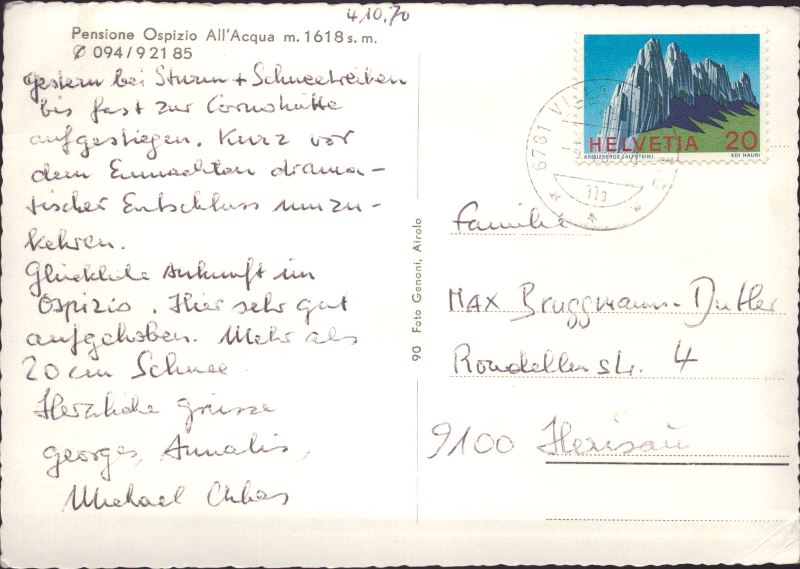 4.10.70
Pensione Ospizio All'Acqua m. 1618 s. m.
✆ 094/9 21 85
gestern bei Sturm + Schneetreiben
bis fast zur Cornohütte
aufgestiegen. Kurz vor
dem Einnachten drama-
tischer Entschluss umzu-
kehren.
Glückliche Ankunft im
Ospizio. Hier sehr gut
aufgehoben. Mehr als
20 cm Schnee.
Herzliche Grüsse
Georges, Annalis,
Michael
90 Foto Genoni, Airolo
6781
HELVETIA 20
KREUZBERGE (ALPSTEIN) EDI HAURI
Familie
MAX Bruggmann-Dutler
Rondellenstr. 4
9100 Herisau